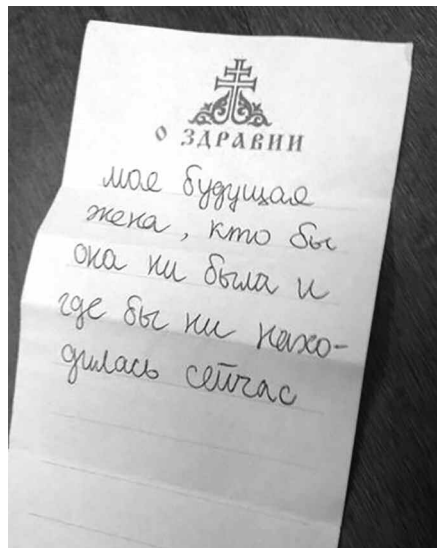 О ЗДРАВИИ
мое будущая
жена, кто бы
она ни была и
где бы ни нахо-
дилась сейчас